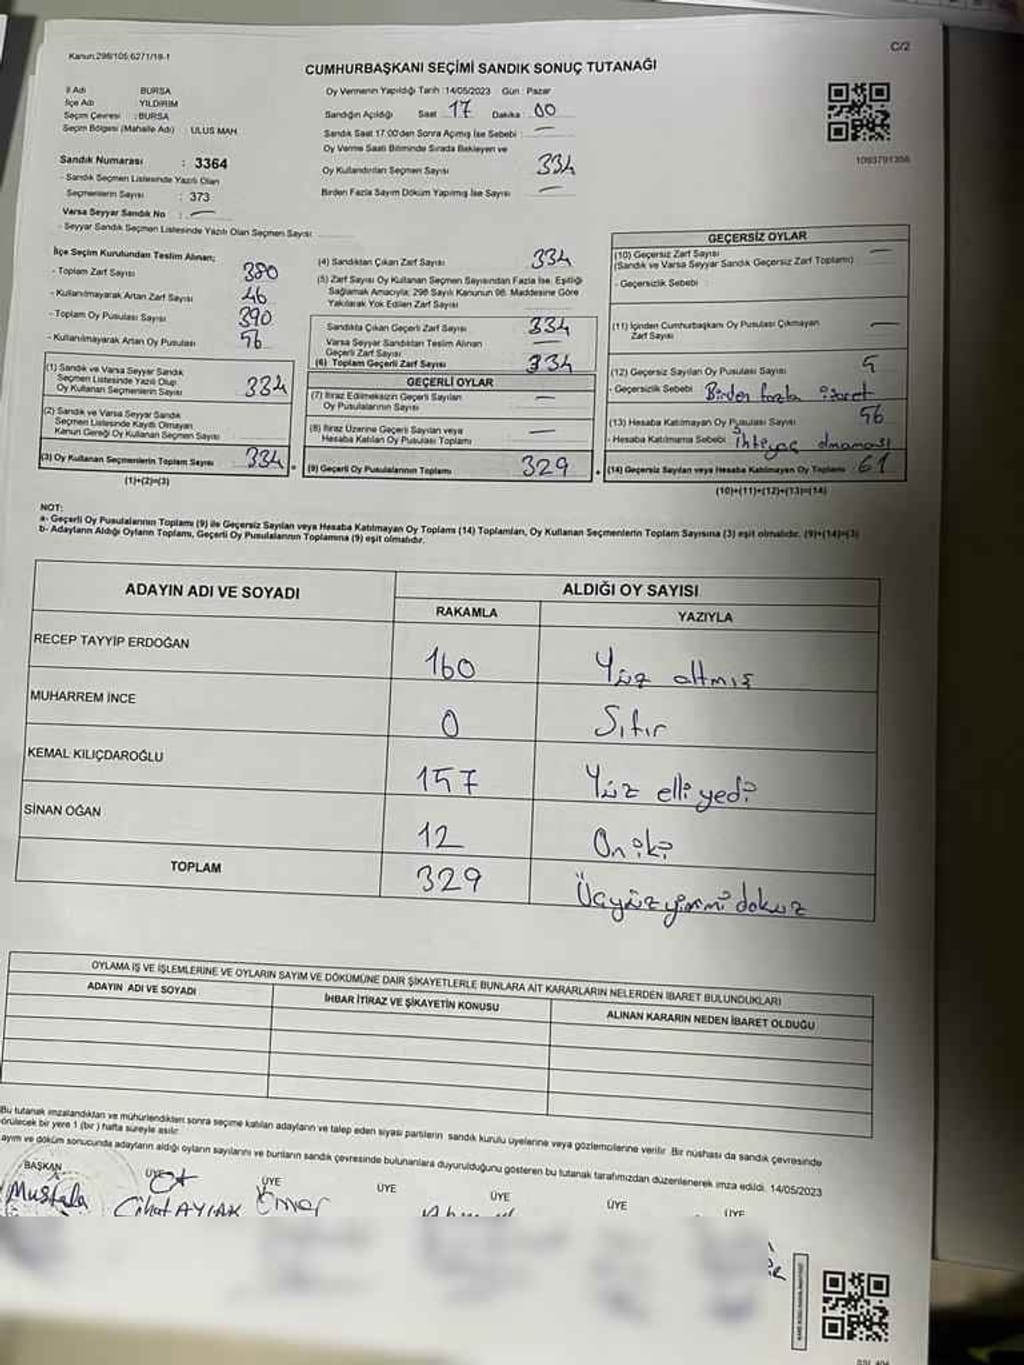 Kanun:298/105;6271/18-1
C/2
CUMHURBAŞKANI SEÇİMİ SANDIK SONUÇ TUTANAĞI
İl Adı BURSA
İlçe Adı YILDIRIM
Seçim Çevresi : BURSA
Seçim Bölgesi (Mahalle Adı) ULUS MAH.
Sandık Numarası : 3364
- Sandık Seçmen Listesinde Yazılı Olan
Seçmenlerin Sayısı : 373
Varsa Seyyar Sandık No : —
- Seyyar Sandık Seçmen Listesinde Yazılı Olan Seçmen Sayısı
Oy Vermenin Yapıldığı Tarih :14/05/2023 Gün : Pazar
Sandığın Açıldığı Saat 17 Dakika : 00
Sandık Saat 17:00'den Sonra Açımış İse Sebebi : —
Oy Verme Saati Bitiminde Sırada Bekleyen ve
Oy Kullandırılan Seçmen Sayısı 334
Birden Fazla Sayım Döküm Yapılmış İse Sayısı —
1093791358
İlçe Seçim Kurulundan Teslim Alınan;
- Toplam Zarf Sayısı 380
- Kullanılmayarak Artan Zarf Sayısı 46
- Toplam Oy Pusulası Sayısı 390
- Kullanılmayarak Artan Oy Pusulası 56
(1) Sandık ve Varsa Seyyar Sandık
Seçmen Listesinde Yazılı Olup
Oy Kullanan Seçmenlerin Sayısı 334
(2) Sandık ve Varsa Seyyar Sandık
Seçmen Listesinde Kayıtlı Olmayan
Kanun Gereği Oy Kullanan Seçmen Sayısı
(3) Oy Kullanan Seçmenlerin Toplam Sayısı 334
(1)+(2)=(3)
(4) Sandıktan Çıkan Zarf Sayısı 334
(5) Zarf Sayısı Oy Kullanan Seçmen Sayısından Fazla İse, Eşitliği
Sağlamak Amacıyla; 298 Sayılı Kanunun 98. Maddesine Göre
Yakılarak Yok Edilen Zarf Sayısı
Sandıkta Çıkan Geçerli Zarf Sayısı 334
Varsa Seyyar Sandıktan Teslim Alınan
Geçerli Zarf Sayısı —
(6) Toplam Geçerli Zarf Sayısı 334
GEÇERLİ OYLAR
(7) İtiraz Edilmeksizin Geçerli Sayılan
Oy Pusulalarının Sayısı —
(8) İtiraz Üzerine Geçerli Sayılan veya
Hesaba Katılan Oy Pusulası Toplamı —
(9) Geçerli Oy Pusulalarının Toplamı 329
GEÇERSİZ OYLAR
(10) Geçersiz Zarf Sayısı —
(Sandık ve Varsa Seyyar Sandık Geçersiz Zarf Toplamı)
- Geçersizlik Sebebi :
(11) İçinden Cumhurbaşkanı Oy Pusulası Çıkmayan
Zarf Sayısı —
(12) Geçersiz Sayılan Oy Pusulası Sayısı 5
- Geçersizlik Sebebi Birden fazla işaret
(13) Hesaba Katılmayan Oy Pusulası Sayısı 56
- Hesaba Katılmama Sebebi İhtiyaç olmaması
(14) Geçersiz Sayılan veya Hesaba Katılmayan Oy Toplamı 61
(10)+(11)+(12)+(13)=(14)
NOT:
a- Geçerli Oy Pusulalarının Toplamı (9) ile Geçersiz Sayılan veya Hesaba Katılmayan Oy Toplamı (14) Toplamları, Oy Kullanan Seçmenlerin Toplam Sayısına (3) eşit olmalıdır. (9)+(14)=(3)
b- Adayların Aldığı Oyların Toplamı, Geçerli Oy Pusulalarının Toplamına (9) eşit olmalıdır.
ADAYIN ADI VE SOYADI ALDIĞI OY SAYISI
RAKAMLA YAZIYLA
RECEP TAYYİP ERDOĞAN 160 Yüz altmış
MUHARREM İNCE 0 Sıfır
KEMAL KILIÇDAROĞLU 157 Yüz elli yedi
SİNAN OĞAN 12 On iki
TOPLAM 329 Üçyüz yirmi dokuz
OYLAMA İŞ VE İŞLEMLERİNE VE OYLARIN SAYIM VE DÖKÜMÜNE DAİR ŞİKAYETLERLE BUNLARA AİT KARARLARIN NELERDEN İBARET BULUNDUKLARI
ADAYIN ADI VE SOYADI İHBAR İTİRAZ VE ŞİKAYETİN KONUSU ALINAN KARARIN NEDEN İBARET OLDUĞU
Bu tutanak imzalandıktan ve mühürlendikten sonra seçime katılan adayların ve talep eden siyasi partilerin sandık kurulu üyelerine veya gözlemcilerine verilir. Bir nüshası da sandık çevresinde
örülecek bir yere 1 (bir) hafta süreyle asılır.
ayım ve döküm sonucunda adayların aldığı oyların sayılarını ve bunların sandık çevresinde bulunanlara duyurulduğunu gösteren bu tutanak tarafımızdan düzenlenerek imza edildi. 14/05/2023
BAŞKAN ÜYE ÜYE ÜYE ÜYE ÜYE ÜYE
Mustafa Cihat AYLAK Ömer